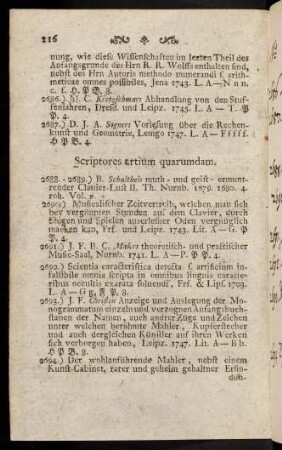 216
nung, wie diese Wissenschaften im lezten Theil des
Anfangsgrunde des Hrn R. R. Wolffs enthalten sind,
nebst des Hrn Autoris methodo numerandi s. arith-
meticae omnes possibiles, Jena 1743. L. A—N n n.
c. f. H. P. B. 8.
2686.) M. C. Kretzschmars Abhandlung von den Stuf-
fenjahren, Dresd. und Leipz. 1745. L. A — T. P
P. 4.
2687.) D. J. A. Segners Vorlesung über die Rechen-
kunst und Geometrie, Lemgo 1747. L. A — F f f f f.
H. P. B. 8.
Scriptores artium quarumdam.
2688. - 2689.) B. Schultheis muth - und geist - ermunt-
render Clavier-Lust II. Th. Nurnb. 1679. 1680. 4.
roh. Vol. 2.
2690.) Musicalischer Zeitvertreib, welchen man sich
bey vergönnten Stunden auf dem Clavier, durch
Singen und Spielen auserlesner Oden vergnüglich
machen kan, Frf. und Leipz. 1743. Lit. A — G. P
P. 4.
2691.) J. F. B. C. Majers theoretisch- und practischer
Music-Saal, Nurnb. 1741. L. A — P. P P. 4.
2692.) Scientia caracteristica detecta s. artificium in-
fallibile omnia scripta in omnibus linguis caracte-
ribus occultis exarata solvendi, Frf. & Lips. 1709.
L. A — G g, F P. 8.
2693.) J. F. Christen Anzeige und Auslegung der Mo-
nogrammatum einzeln und verzognen Anfangsbuch-
staben der Namen, auch andrer Züge und Zeichen
unter welchen berühmte Mahler, Kupferstecher
und auch dergleichen Künstler auf ihren Werken
sich verborgen haben, Leipz. 1747. Lit. A — B b.
H P B. 8.
2694.) Der wohlanführende Mahler, nebst einem
Kunst-Cabinet, rarer und geheim gehaltner Erfin-
dun-